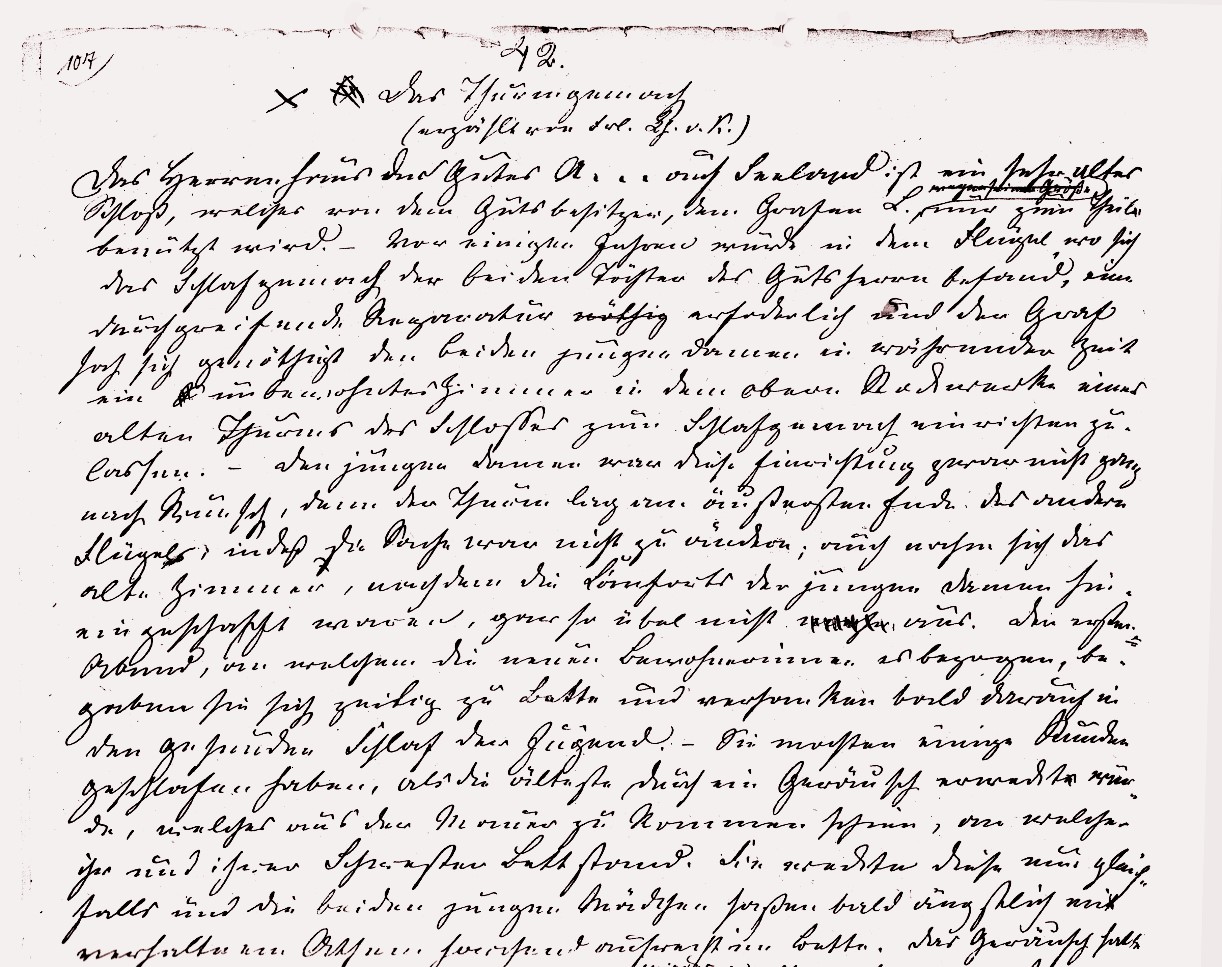 107
42.
Das Thurmgemach
(erzählt von Frl. v. K.)
Das Herrenhaus des Gutes A... auf Seeland ist ein sehr altes
Schloß, welches von dem Gutsbesitzer, dem Grafen L. nur zum Theile
benützt wird. – Vor einigen Jahren wurde in dem Flügel, wo sich
das Schlafgemach der beiden Töchter des Gutsherrn befand, eine
durchgreifende Reparatur nöthig erforderlich und der Graf
sah sich genöthigt den beiden jungen Damen in währender Zeit
ein unbewohntes Zimmer in dem obern Stockwerke eines
alten Thurms des Schlosses zum Schlafgemach einrichten zu
lassen. – Den jungen Damen war diese Einrichtung zwar nicht ganz
nach Wunsch, denn der Thurm lag am äußersten Ende des andern
Flügels; indeß die Sache war nicht zu ändern; auch nahm sich das
alte Zimmer, nachdem die Comforts der jungen Damen hin-
eingeschafft waren, gar so übel nicht aus. Den ersten
Abend, an welchem die neuen Bewohnerinnen es bezogen, be-
gaben sie sich zeitig zu Bette und versanken bald darauf in
den gesunden Schlaf der Jugend. – Sie mochten einige Stunden
geschlafen haben, als die älteste durch ein Geräusch erweckt wur-
de, welches aus der Mauer zu kommen schien, an welcher
ihr und ihrer Schwester Bett stand. Sie weckte diese nun gleich-
falls und die beiden jungen Mädchen saßen bald ängstlich mit
verhaltenem Athem horchend aufrecht im Bette. Das Geräusch hatte